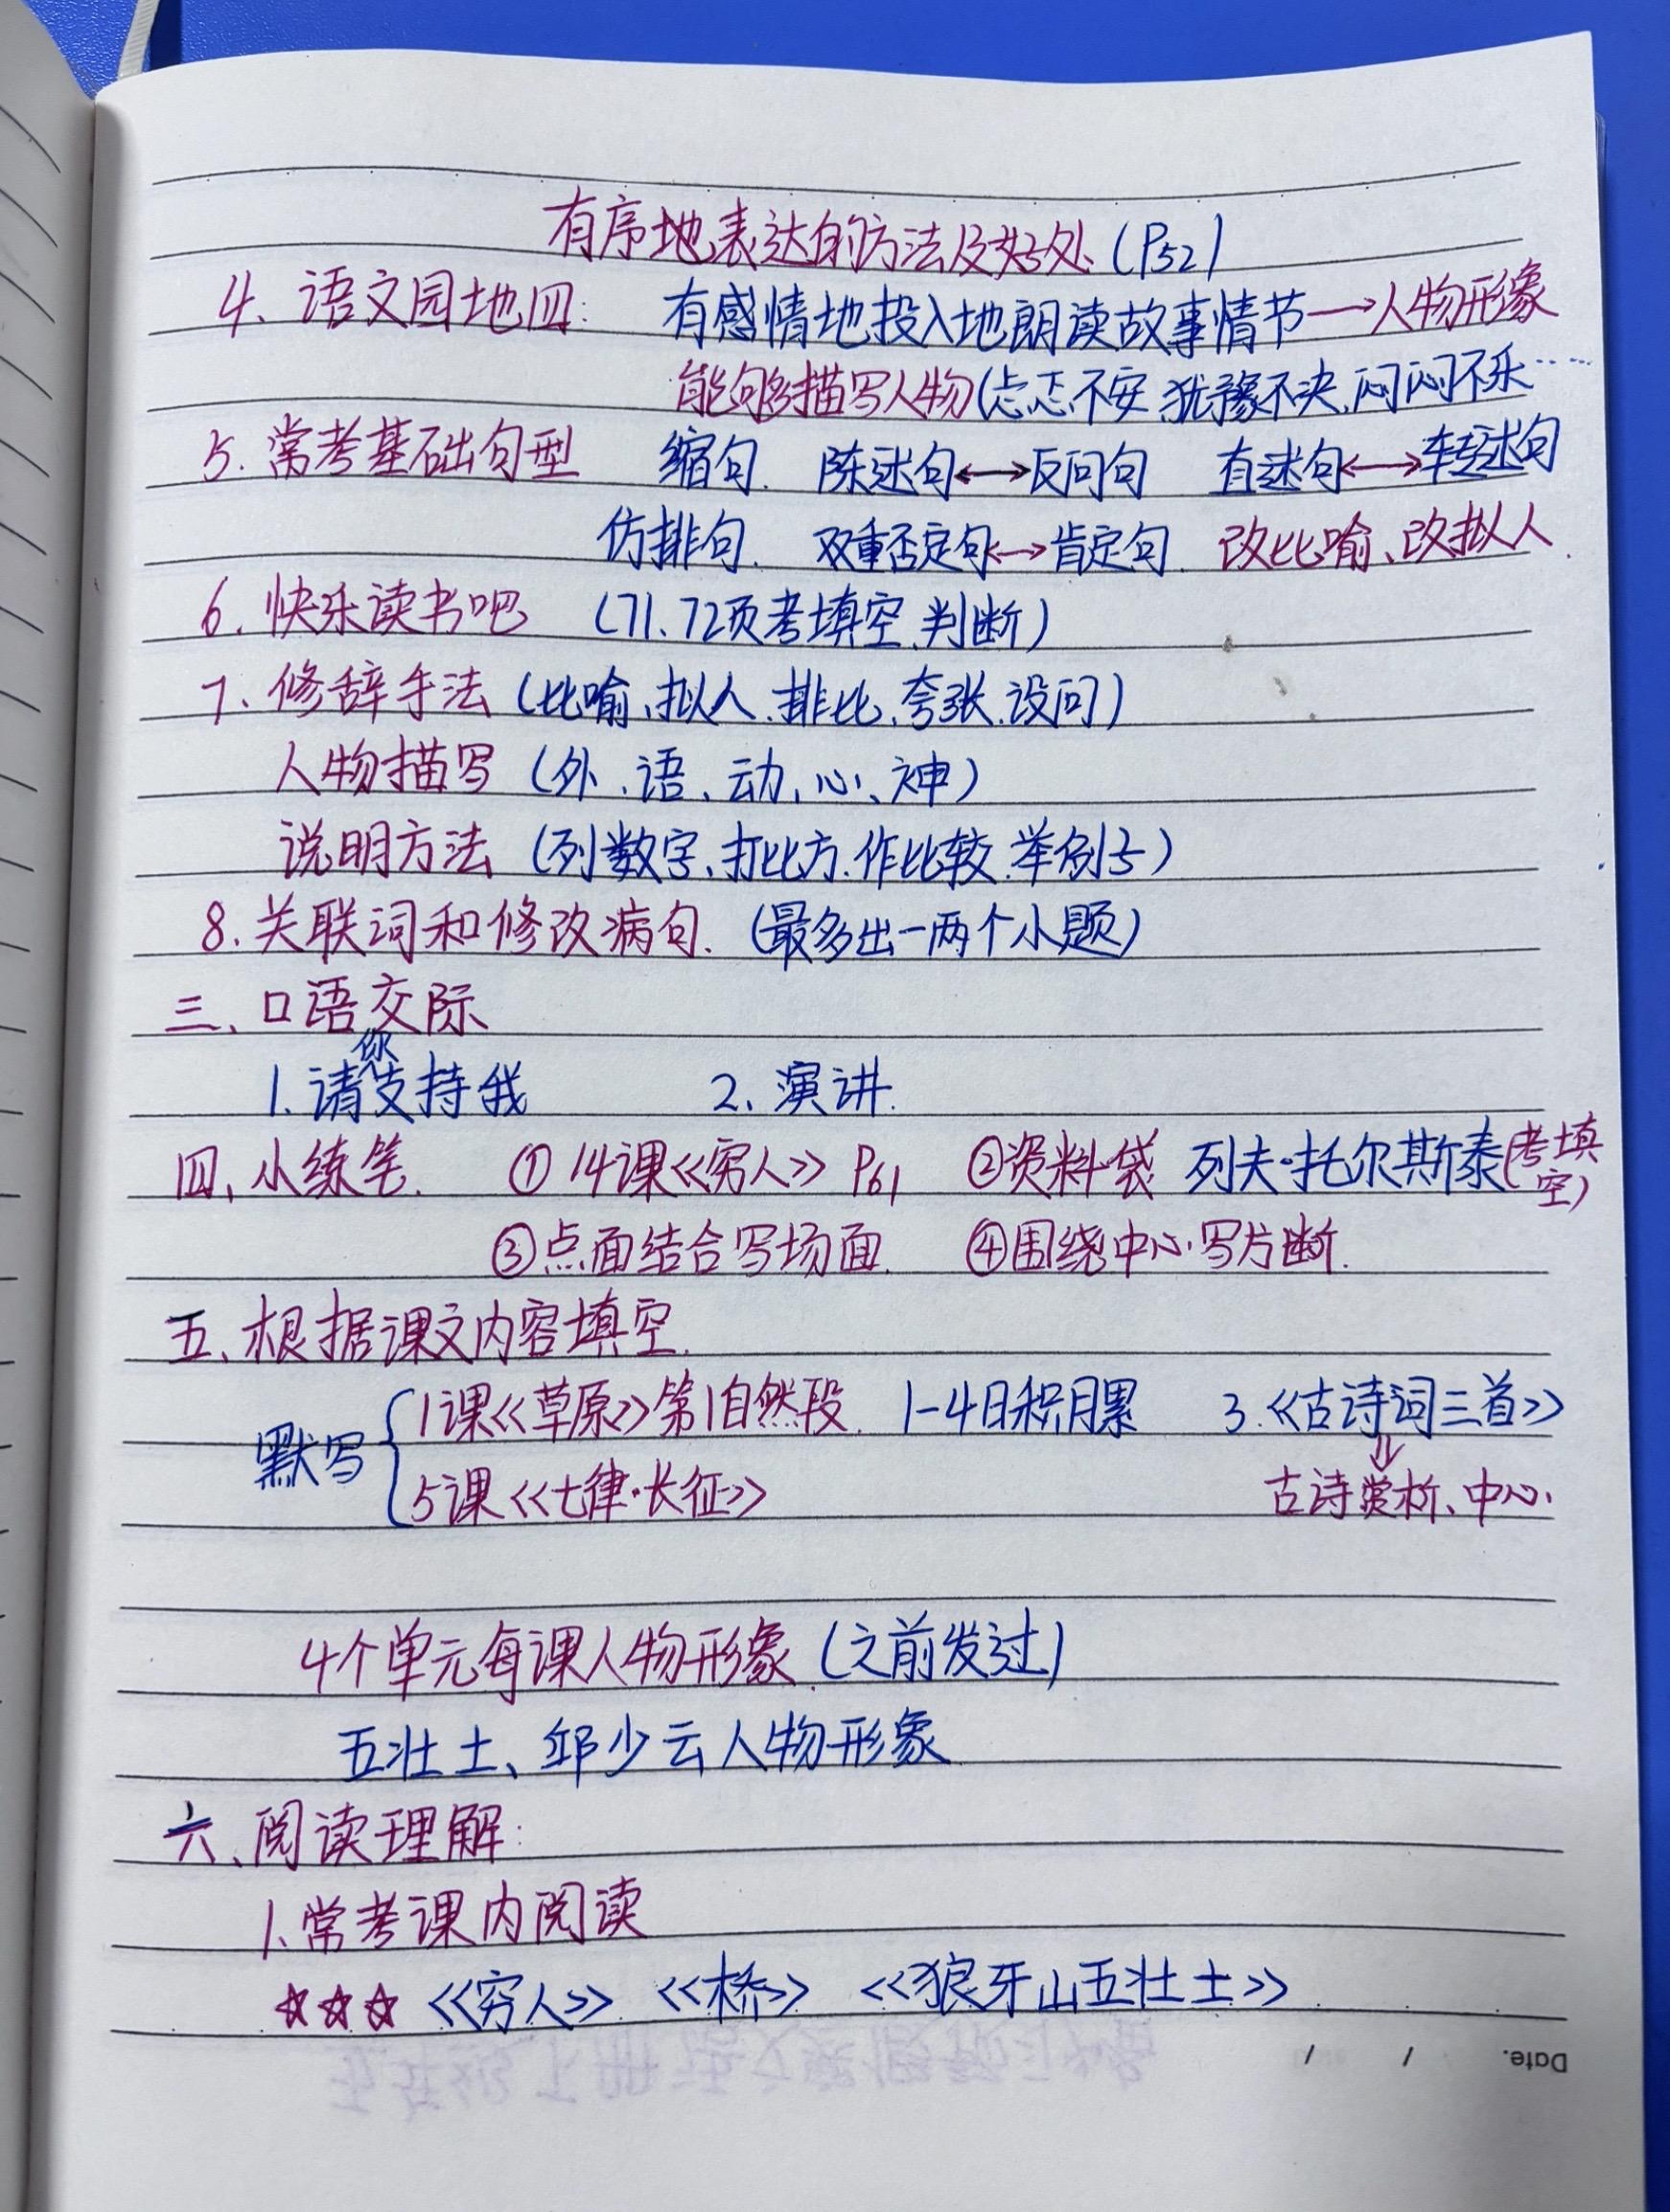 有序地表达的方法及好处(P52)
4、语文园地四: 有感情地投入地朗读故事情节→人物形象
能够描写人物(忐忑不安 犹豫不决、闷闷不乐……
5.常考基础句型 缩句. 陈述句←→反问句 直述句←→转述句
仿排句. 双重否定句←→肯定句. 改比喻、改拟人.
6.快乐读书吧 (71.72页考填空、判断)
7.修辞手法(比喻、拟人.排比、夸张.设问)
人物描写(外、语、动、心、神)
说明方法(列数字、打比方.作比较.举例子)
8.关联词和修改病句.(最多出一两个小题)
三、口语交际
1.请你支持我 2、演讲.
四、小练笔. ①14课《穷人》P61 ②资料袋 列夫·托尔斯泰(考填空)
③点面结合写场面. ④围绕中心写片断.
五、根据课文内容填空.
默写 1课《草原》第1自然段. 1-4日积月累 3.《古诗词三首》
5课《七律·长征》 ⇓ 古诗赏析、中心.
4个单元每课人物形象.(之前发过)
五壮士、邱少云人物形象
六、阅读理解:
1.常考课内阅读
☆☆☆《穷人》《桥》《狼牙山五壮士》
Date. / /